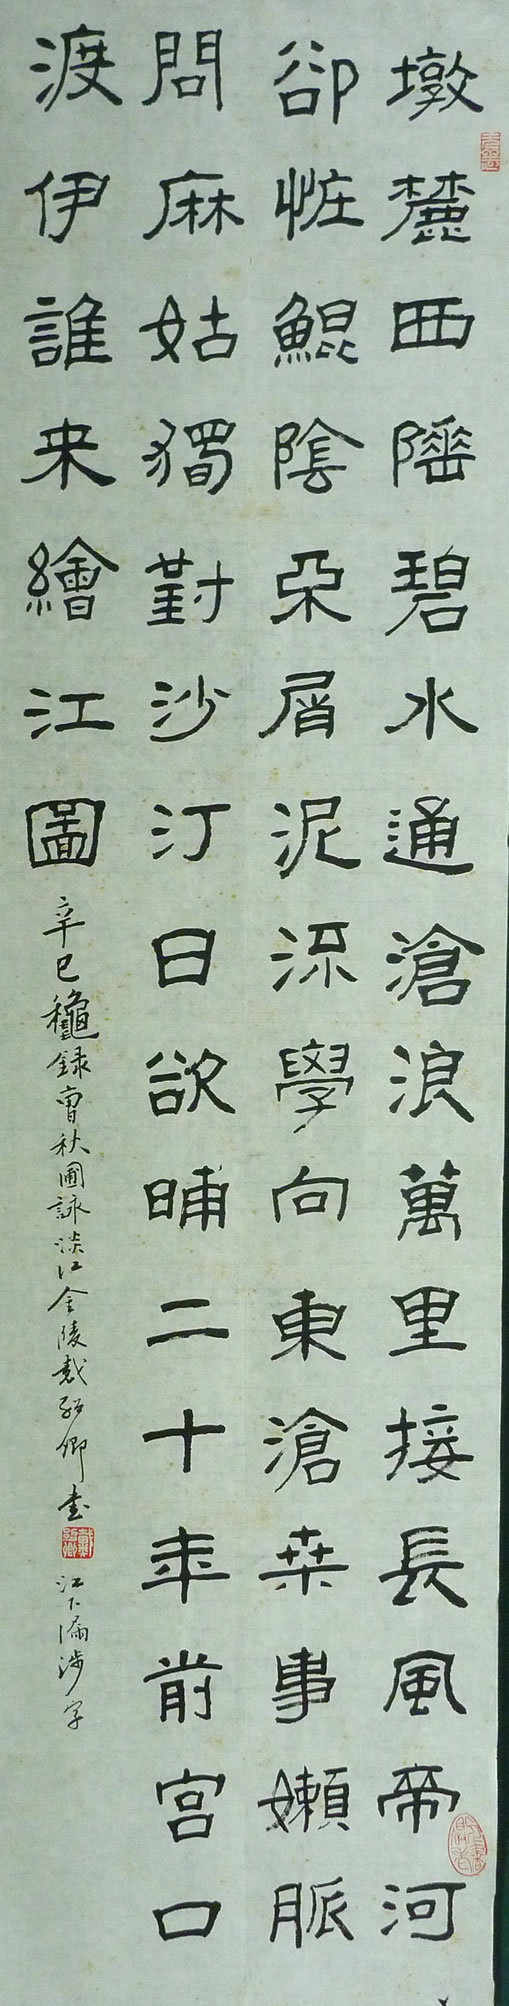 墩麓西陲碧水通滄浪萬里接長風帝河
卻恠鯤陰朶屑泥深學向東滄桒事嬾脈
問麻姑獨對沙汀日欲晡二十年前宮口
渡伊誰来繪江圖
辛巳龝録曾秋圃詠淡江金陵戴卿書
江下漏涉字